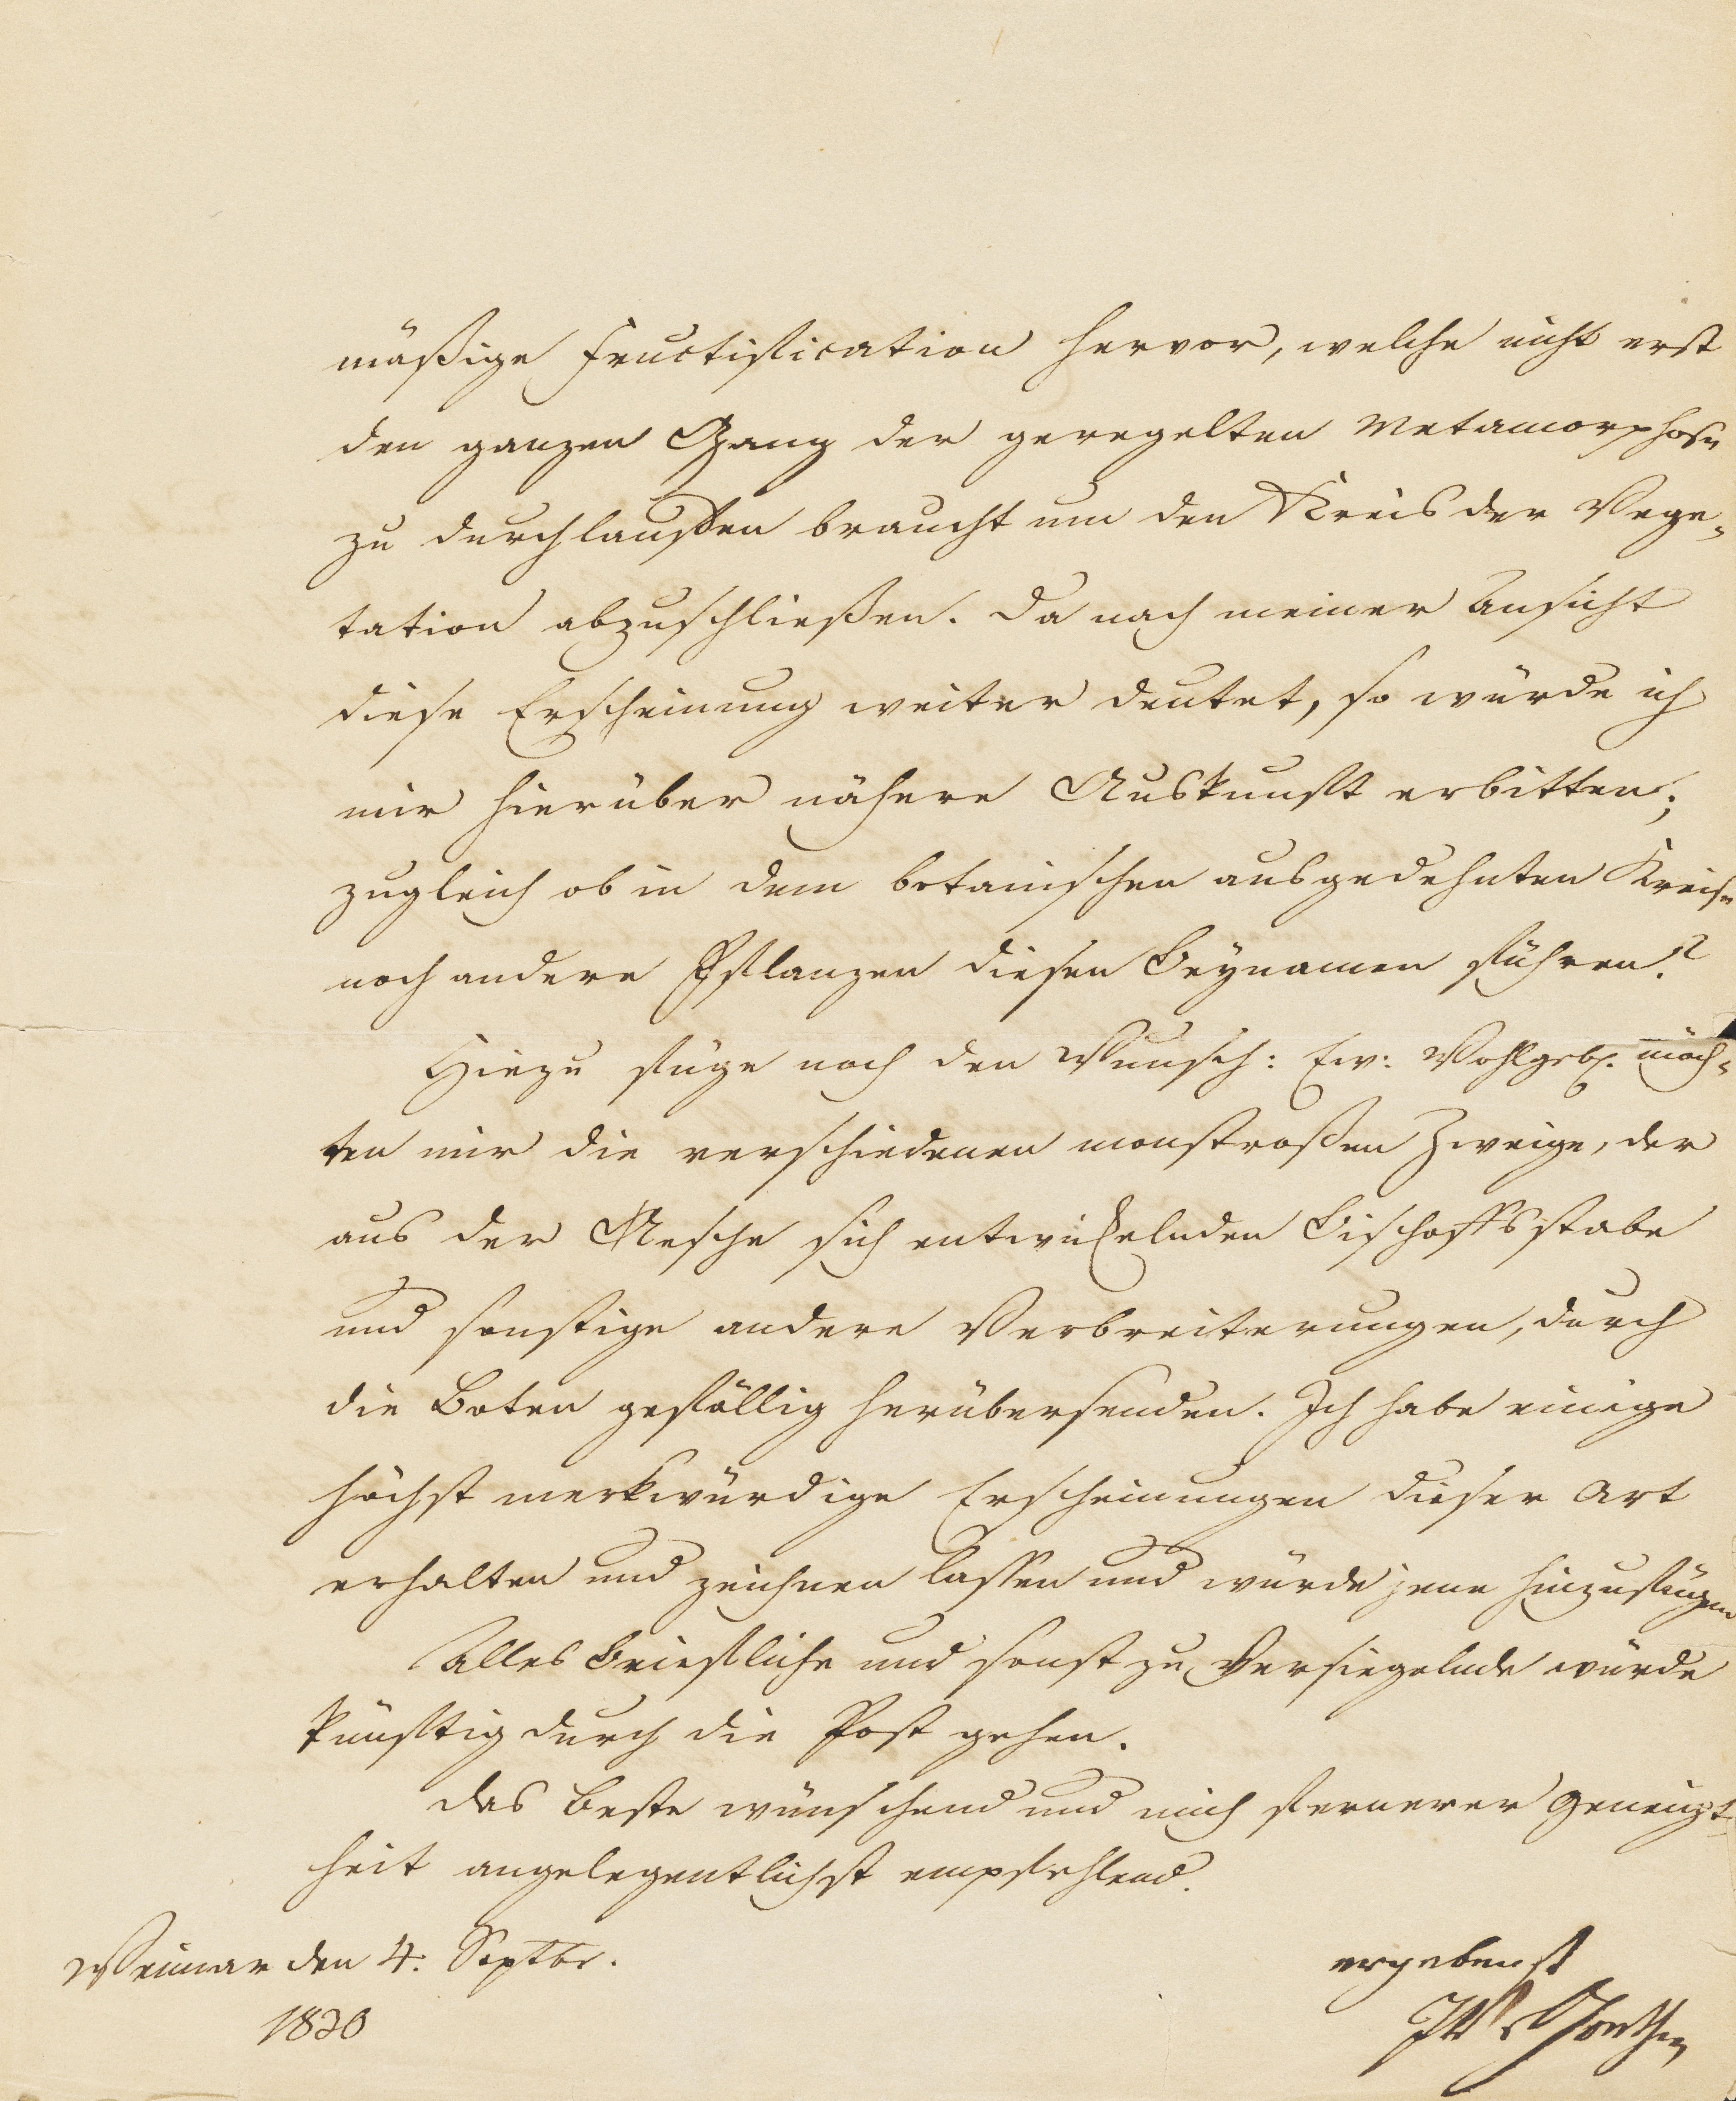 mäßige Fructification hervor, welche nicht erst
den ganzen Gang der geregelten Metamorphose
zu durchlaufen braucht um den Kreis der Vege-
tation abzuschließen. Da nach meiner Ansicht
diese Erscheinung weiter deutet, so würde ich
mir hierüber nähere Auskunft erbitten;
zugleich ob in dem botanischen ausgedehnten Kreise
noch andere Pflanzen diesen Beynamen führen?
Hiezu füge noch den Wunsch: Ew: Wohlgeb. möch-
ten mir die verschiedenen monstroßen Zweige, der
aus der Aesche sich entwickelnden Bischoffsstabe
und sonstige andere Verbreiterungen, durch
die Boten gefällig herübersenden. Ich habe einige
höchst merkwürdige Erscheinungen dieser Art
erhalten und zeichnen lassen und würde jene hinzufügen
Alles Briefliche und sonst zu Versiegelnde würde
künftig durch die Post gehen.
Das Beste wünschend und mich fernerer Geneigt-
heit angelegentlichst empfehlend.
Weimar den 4. Septbr.
1820
ergebenst
JWvGoethe